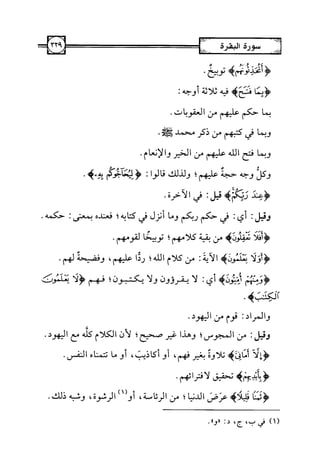 سورة البقرة
٣٢٩
﴿أَتُحَدِّثُونَهُم﴾ توبيخٌ.
﴿بِمَا فَتَحَ﴾ فيه ثلاثة أوجه:
بما حكم عليهم من العقوبات.
وبما في كتبهم من ذكر محمد ﷺ.
وبما فتح الله عليهم من الخير والإنعام.
وكلُّ وجه حجةٌ عليهم؛ ولذلك قالوا: ﴿لِيُحَاجُّوكُم بِهِ﴾.
﴿عِندَ رَبِّكُمْ﴾ قيل: في الآخرة.
وقيل: أي: في حكم ربكم وما أنزل في كتابه؛ فعنده بمعنى: حكمه.
﴿أَفَلَا تَعْقِلُونَ﴾ من بقية كلامهم؛ توبيخًا لقومهم.
﴿أَوَلَا يَعْلَمُونَ﴾ الآية: من كلام الله؛ ردًّا عليهم، وفضيحةً لهم.
﴿وَمِنْهُمْ أُمِّيُّونَ﴾ أي: لا يقرؤون ولا يكتبون؛ فهم ﴿لَا يَعْلَمُونَ
الْكِتَابَ﴾.
والمراد: قوم من اليهود.
وقيل: من المجوس؛ وهذا غير صحيح؛ لأن الكلام كلَّه مع اليهود.
﴿إِلَّا أَمَانِيَّ﴾ تلاوةً بغير فهم، أو أكاذيبَ، أو ما تتمناه النفس.
﴿بِأَيْدِيهِمْ﴾ تحقيق لافترائهم.
﴿ثَمَنًا قَلِيلًا﴾ عرَضَ الدنيا؛ من الرئاسة، أو(١) الرشوة، وشبه ذلك.
(١) في ب، ج، د: «و».